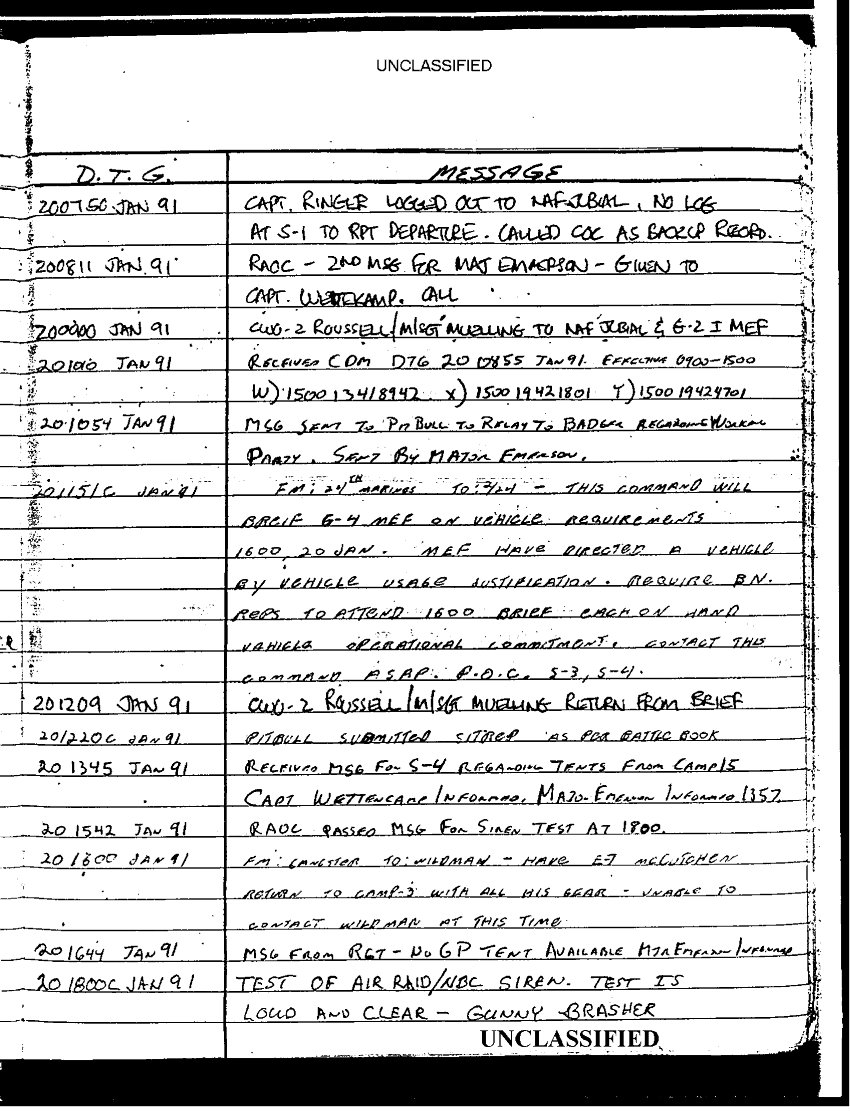 UNCLASSIFIED
D.T.G. MESSAGE
200750 JAN 91 CAPT. RINGER LOGGED OUT TO NAF JUBIAL, NO LOG
AT S-1 TO RPT DEPARTURE. CALLED COC AS BACKUP RECORD.
200811 JAN 91 RAOC - 2ND MSG FOR MAJ EMERSON - GIVEN TO
CAPT. WETTEKAMP. CALL
200900 JAN 91 CWO-2 ROUSSELL/M/SGT MUELLING TO NAF JUBIAL & G-2 I MEF
201010 JAN 91 RECEIVED CDM DTG 20 0855 JAN 91. EFFECTIVE 0900-1500
W) 1500 13418942 X) 1500 19421801 Y) 1500 19424701
201054 JAN 91 MSG SENT TO PIT BULL TO RELAY TO BADGER REGARDING WORKING
PARTY. SENT BY MAJOR EMERSON.
201151C JAN 91 FM: 24TH MARINES TO: 2/24 - THIS COMMAND WILL
BREIF G-4 MEF ON VEHICLE REQUIREMENTS
1600, 20 JAN. MEF HAVE DIRECTED A VEHICLE
BY VEHICLE USAGE JUSTIFICATION. REQUIRE BN.
REPS TO ATTEND 1600 BRIEF EACH ON HAND
VEHICLE OPERATIONAL COMMITMENT. CONTACT THIS
COMMAND ASAP. P.O.C. S-3, S-4.
201209 JAN 91 CWO-2 ROUSSELL/M/SGT MUELLING RETURN FROM BRIEF
201220C JAN 91 PITBULL SUBMITTED SITREP AS PER BATTLE BOOK
201345 JAN 91 RECEIVED MSG FOR S-4 REGARDING TENTS FROM CAMP 15
CAPT WETTENCAMP INFORMED, MAJOR EMERSON INFORMED 1357.
201542 JAN 91 RAOC PASSED MSG FOR SIREN TEST AT 1800.
201600 JAN 91 FM: GANGSTER TO: WILDMAN - HAVE E-7 MCCUTCHEN
RETURN TO CAMP-3 WITH ALL HIS GEAR - UNABLE TO
CONTACT WILDMAN AT THIS TIME
201644 JAN 91 MSG FROM RGT - NO GP TENT AVAILABLE MJR EMERSON INFORMED
201800C JAN 91 TEST OF AIR RAID/NBC SIREN. TEST IS
LOUD AND CLEAR - GUNNY BRASHER
UNCLASSIFIED